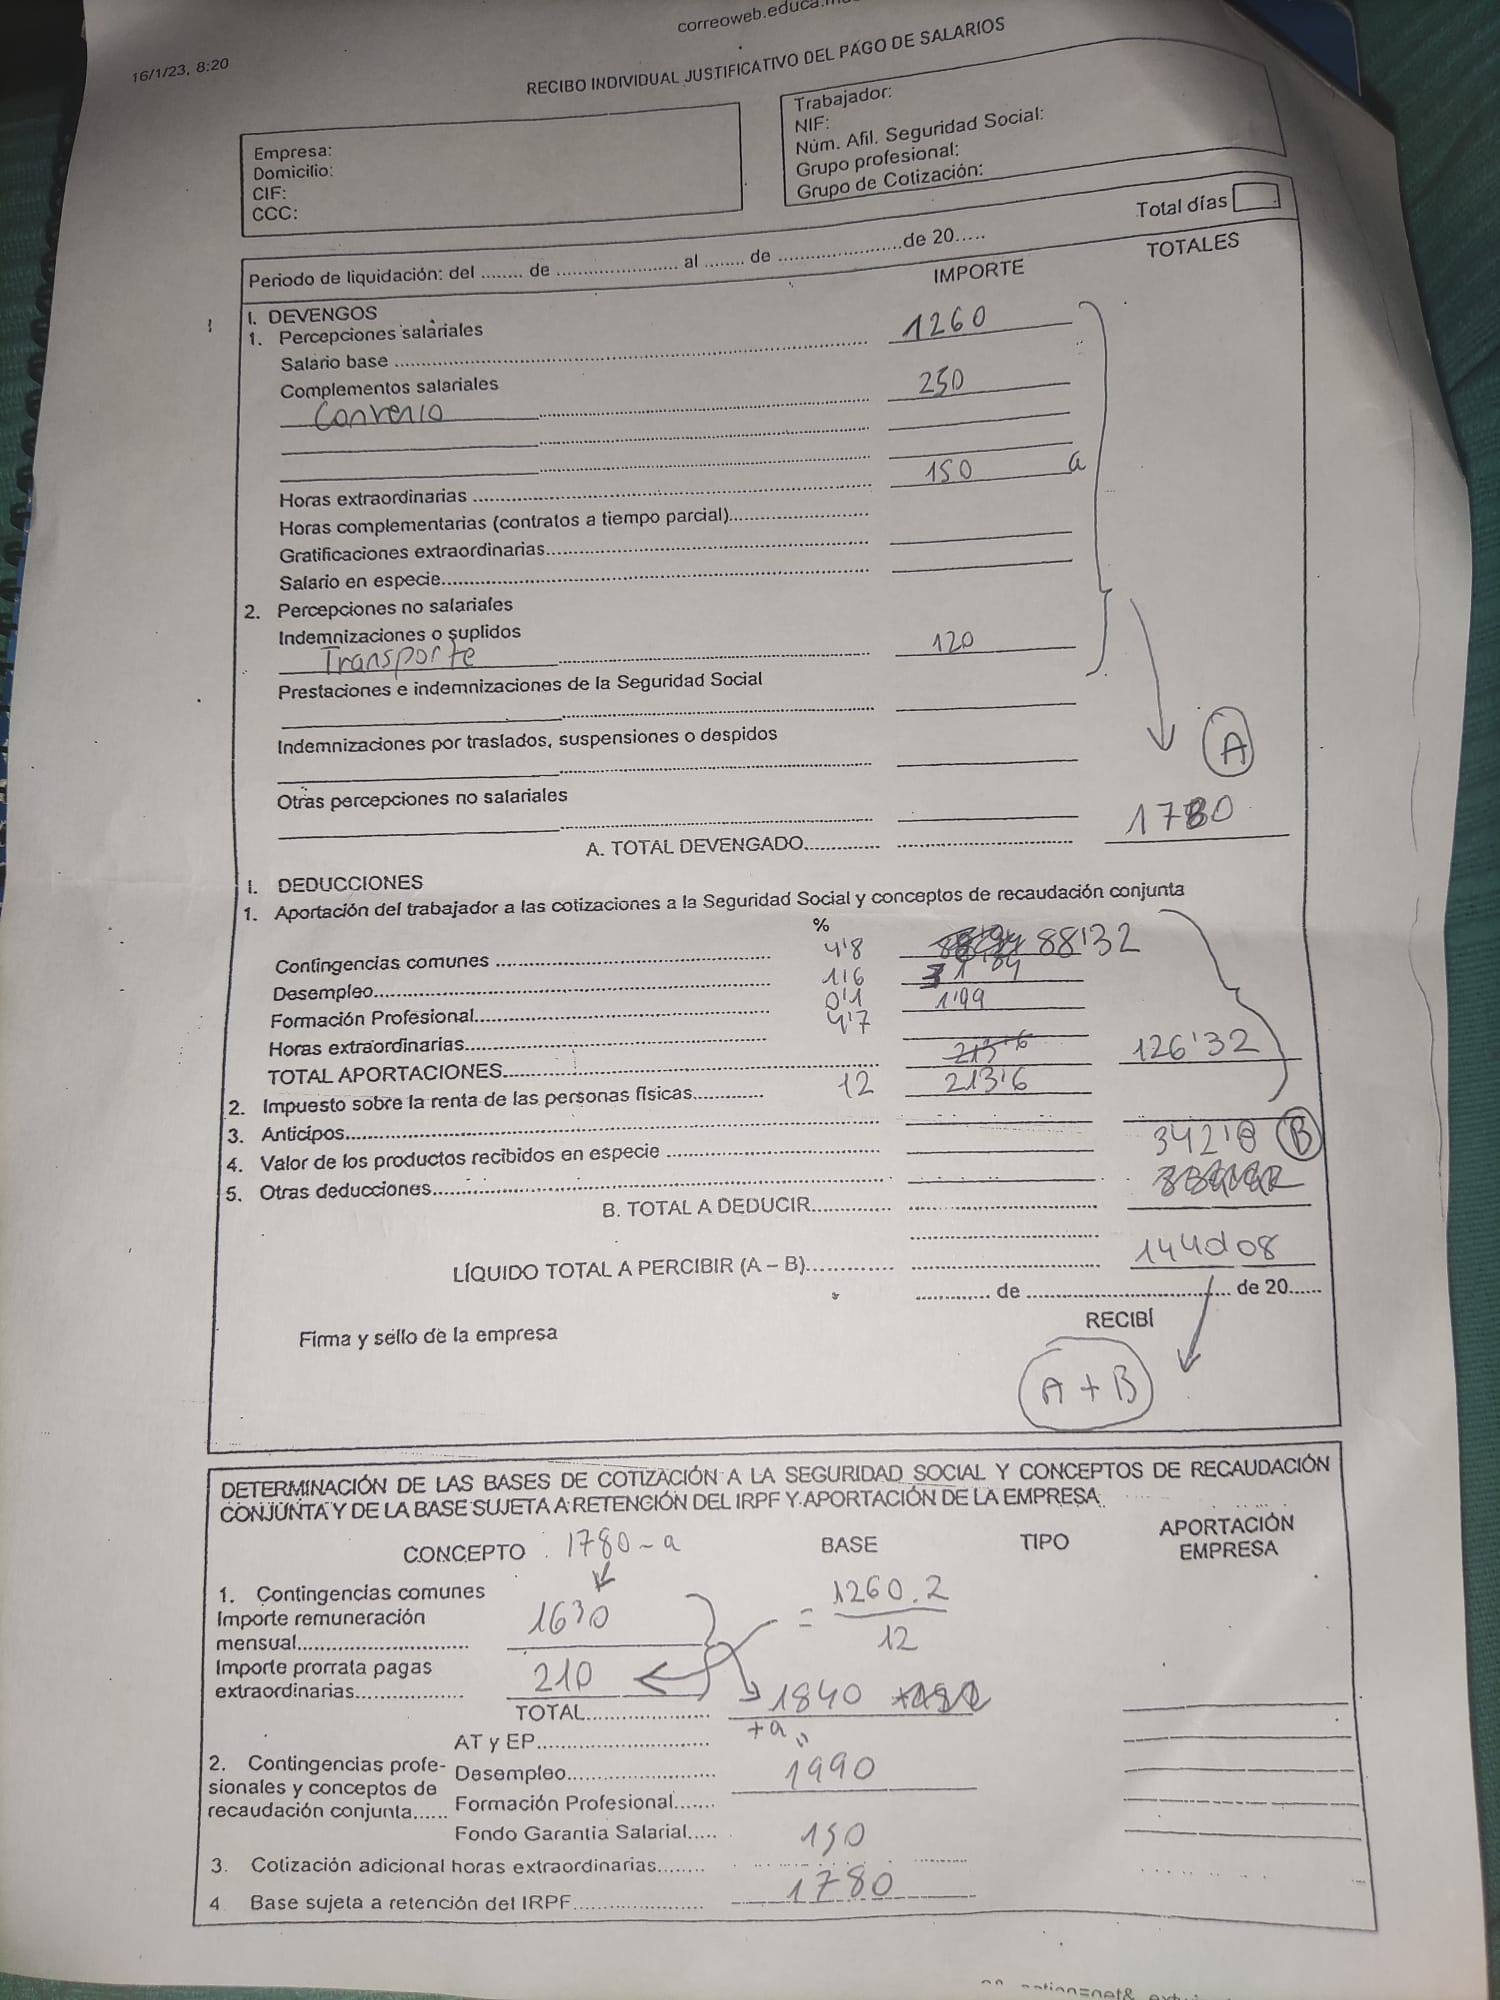 correoweb.educa.
16/1/23, 8:20
RECIBO INDIVIDUAL JUSTIFICATIVO DEL PAGO DE SALARIOS
Empresa:
Domicilio:
CIF:
CCC:
Trabajador:
NIF:
Núm. Afil. Seguridad Social:
Grupo profesional:
Grupo de Cotización:
Periodo de liquidación: del ........ de ........................ al ........ de ........................de 20..... Total días
IMPORTE TOTALES
I. DEVENGOS
1. Percepciones salariales
Salario base ........ 1260
Complementos salariales
Convenio ........ 250
Horas extraordinarias ........ 150 a
Horas complementarias (contratos a tiempo parcial)........
Gratificaciones extraordinarias........
Salario en especie........
2. Percepciones no salariales
Indemnizaciones o suplidos
Transporte ........ 120
Prestaciones e indemnizaciones de la Seguridad Social
Indemnizaciones por traslados, suspensiones o despidos
A
Otras percepciones no salariales
A. TOTAL DEVENGADO............. 1780
I. DEDUCCIONES
1. Aportación del trabajador a las cotizaciones a la Seguridad Social y conceptos de recaudación conjunta
%
Contingencias comunes ........ 4'8 88'32
Desempleo........ 1'6
Formación Profesional........ 0'1 1'99
Horas extraordinarias........ 4'7
TOTAL APORTACIONES........ 213'6 126'32
2. Impuesto sobre la renta de las personas físicas............. 12 213'6
3. Anticipos........
4. Valor de los productos recibidos en especie ........ B
5. Otras deducciones........
B. TOTAL A DEDUCIR.............
LÍQUIDO TOTAL A PERCIBIR (A – B).............
............. de ........................ de 20......
Firma y sello de la empresa RECIBÍ
A + B
DETERMINACIÓN DE LAS BASES DE COTIZACIÓN A LA SEGURIDAD SOCIAL Y CONCEPTOS DE RECAUDACIÓN
CONJUNTA Y DE LA BASE SUJETA A RETENCIÓN DEL IRPF Y APORTACIÓN DE LA EMPRESA.
CONCEPTO 1780-a BASE TIPO APORTACIÓN
EMPRESA
1. Contingencias comunes
Importe remuneración
mensual............ 1630 = 1260.2
12
Importe prorrata pagas
extraordinarias............ 210
TOTAL............ 1840
AT y EP............ +a
2. Contingencias profe-
sionales y conceptos de
recaudación conjunta......
Desempleo............ 1990
Formación Profesional.......
Fondo Garantia Salarial.....
3. Cotización adicional horas extraordinarias........ 150
4. Base sujeta a retención del IRPF............ 1780